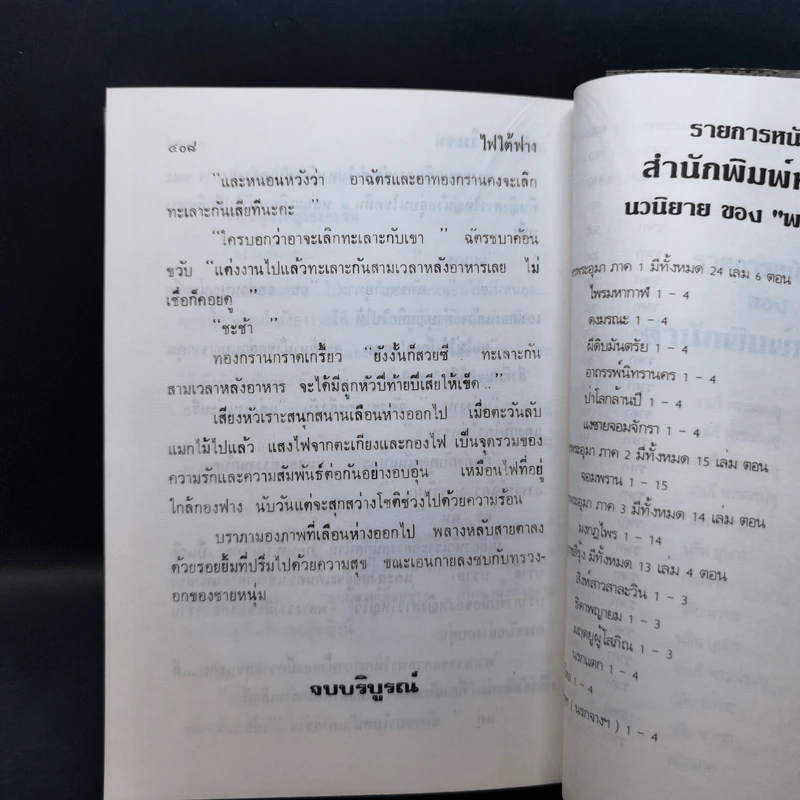 ๔๐๘
ไฟใต้ฟาง
"และหนอนหวังว่า อาฉัตรและอาทองกรานคงจะเลิก
ทะเลาะกันเสียทีนะคะ "
"ใครบอกว่าอาจะเลิกทะเลาะกับเขา " ฉัตรชบาค้อน
ขวับ "แต่งงานไปแล้วทะเลาะกันสามเวลาหลังอาหารเลย ไม่
เชื่อก็คอยดู "
"ชะช้า "
ทองกรานกราดเกรี้ยว "ยังงั้นก็สวยซี ทะเลาะกัน
สามเวลาหลังอาหาร จะได้มีลูกหัวปีท้ายปีเสียให้เข็ด.."
เสียงหัวเราะสนุกสนานเลือนห่างออกไป เมื่อตะวันลับ
แมกไม้ไปแล้ว แสงไฟจากตะเกียงและกองไฟ เป็นจุดรวมของ
ความรักและความสัมพันธ์ต่อกันอย่างอบอุ่น เหมือนไฟที่อยู่
ใกล้กองฟาง นับวันแต่จะสุกสว่างโชติช่วงไปด้วยความร้อน
บราภามองภาพที่เลือนห่างออกไป พลางหลับสายตาลง
ด้วยรอยยิ้มที่ปริ่มไปด้วยความสุข ขณะเอนกายลงซบกับทรวง-
อกของชายหนุ่ม
จบบริบูรณ์
รายการหนั
สำนักพิมพ์
นวนิยาย ของ "พ
พระอุมา ภาค 1 มีทั้งหมด 24 เล่ม 6 ตอน
ไพรมหากาฬ 1 - 4
ดงมรณะ 1 - 4
ผีดิบมันตรัย 1 - 4
อาถรรพ์นิทรานคร 1 - 4
ป่าโลกล้านปี 1 - 4
แงซายจอมจักรา 1 - 4
พระอุมา ภาค 2 มีทั้งหมด 15 เล่ม ตอน
จอมพราน 1 - 15
พระอุมา ภาค 3 มีทั้งหมด 14 เล่ม ตอน
มงกุฎไพร 1 - 14
รุ้ง มีทั้งหมด 13 เล่ม 4 ตอน
สิงห์สาวสาละวิน 1 - 3
ธิดาพญายม 1 - 3
มฤตยูผู้โสภิณ 1 - 3
นรกแตก 1 - 4
1 - 4
( นรกจางฯ ) 1 - 4